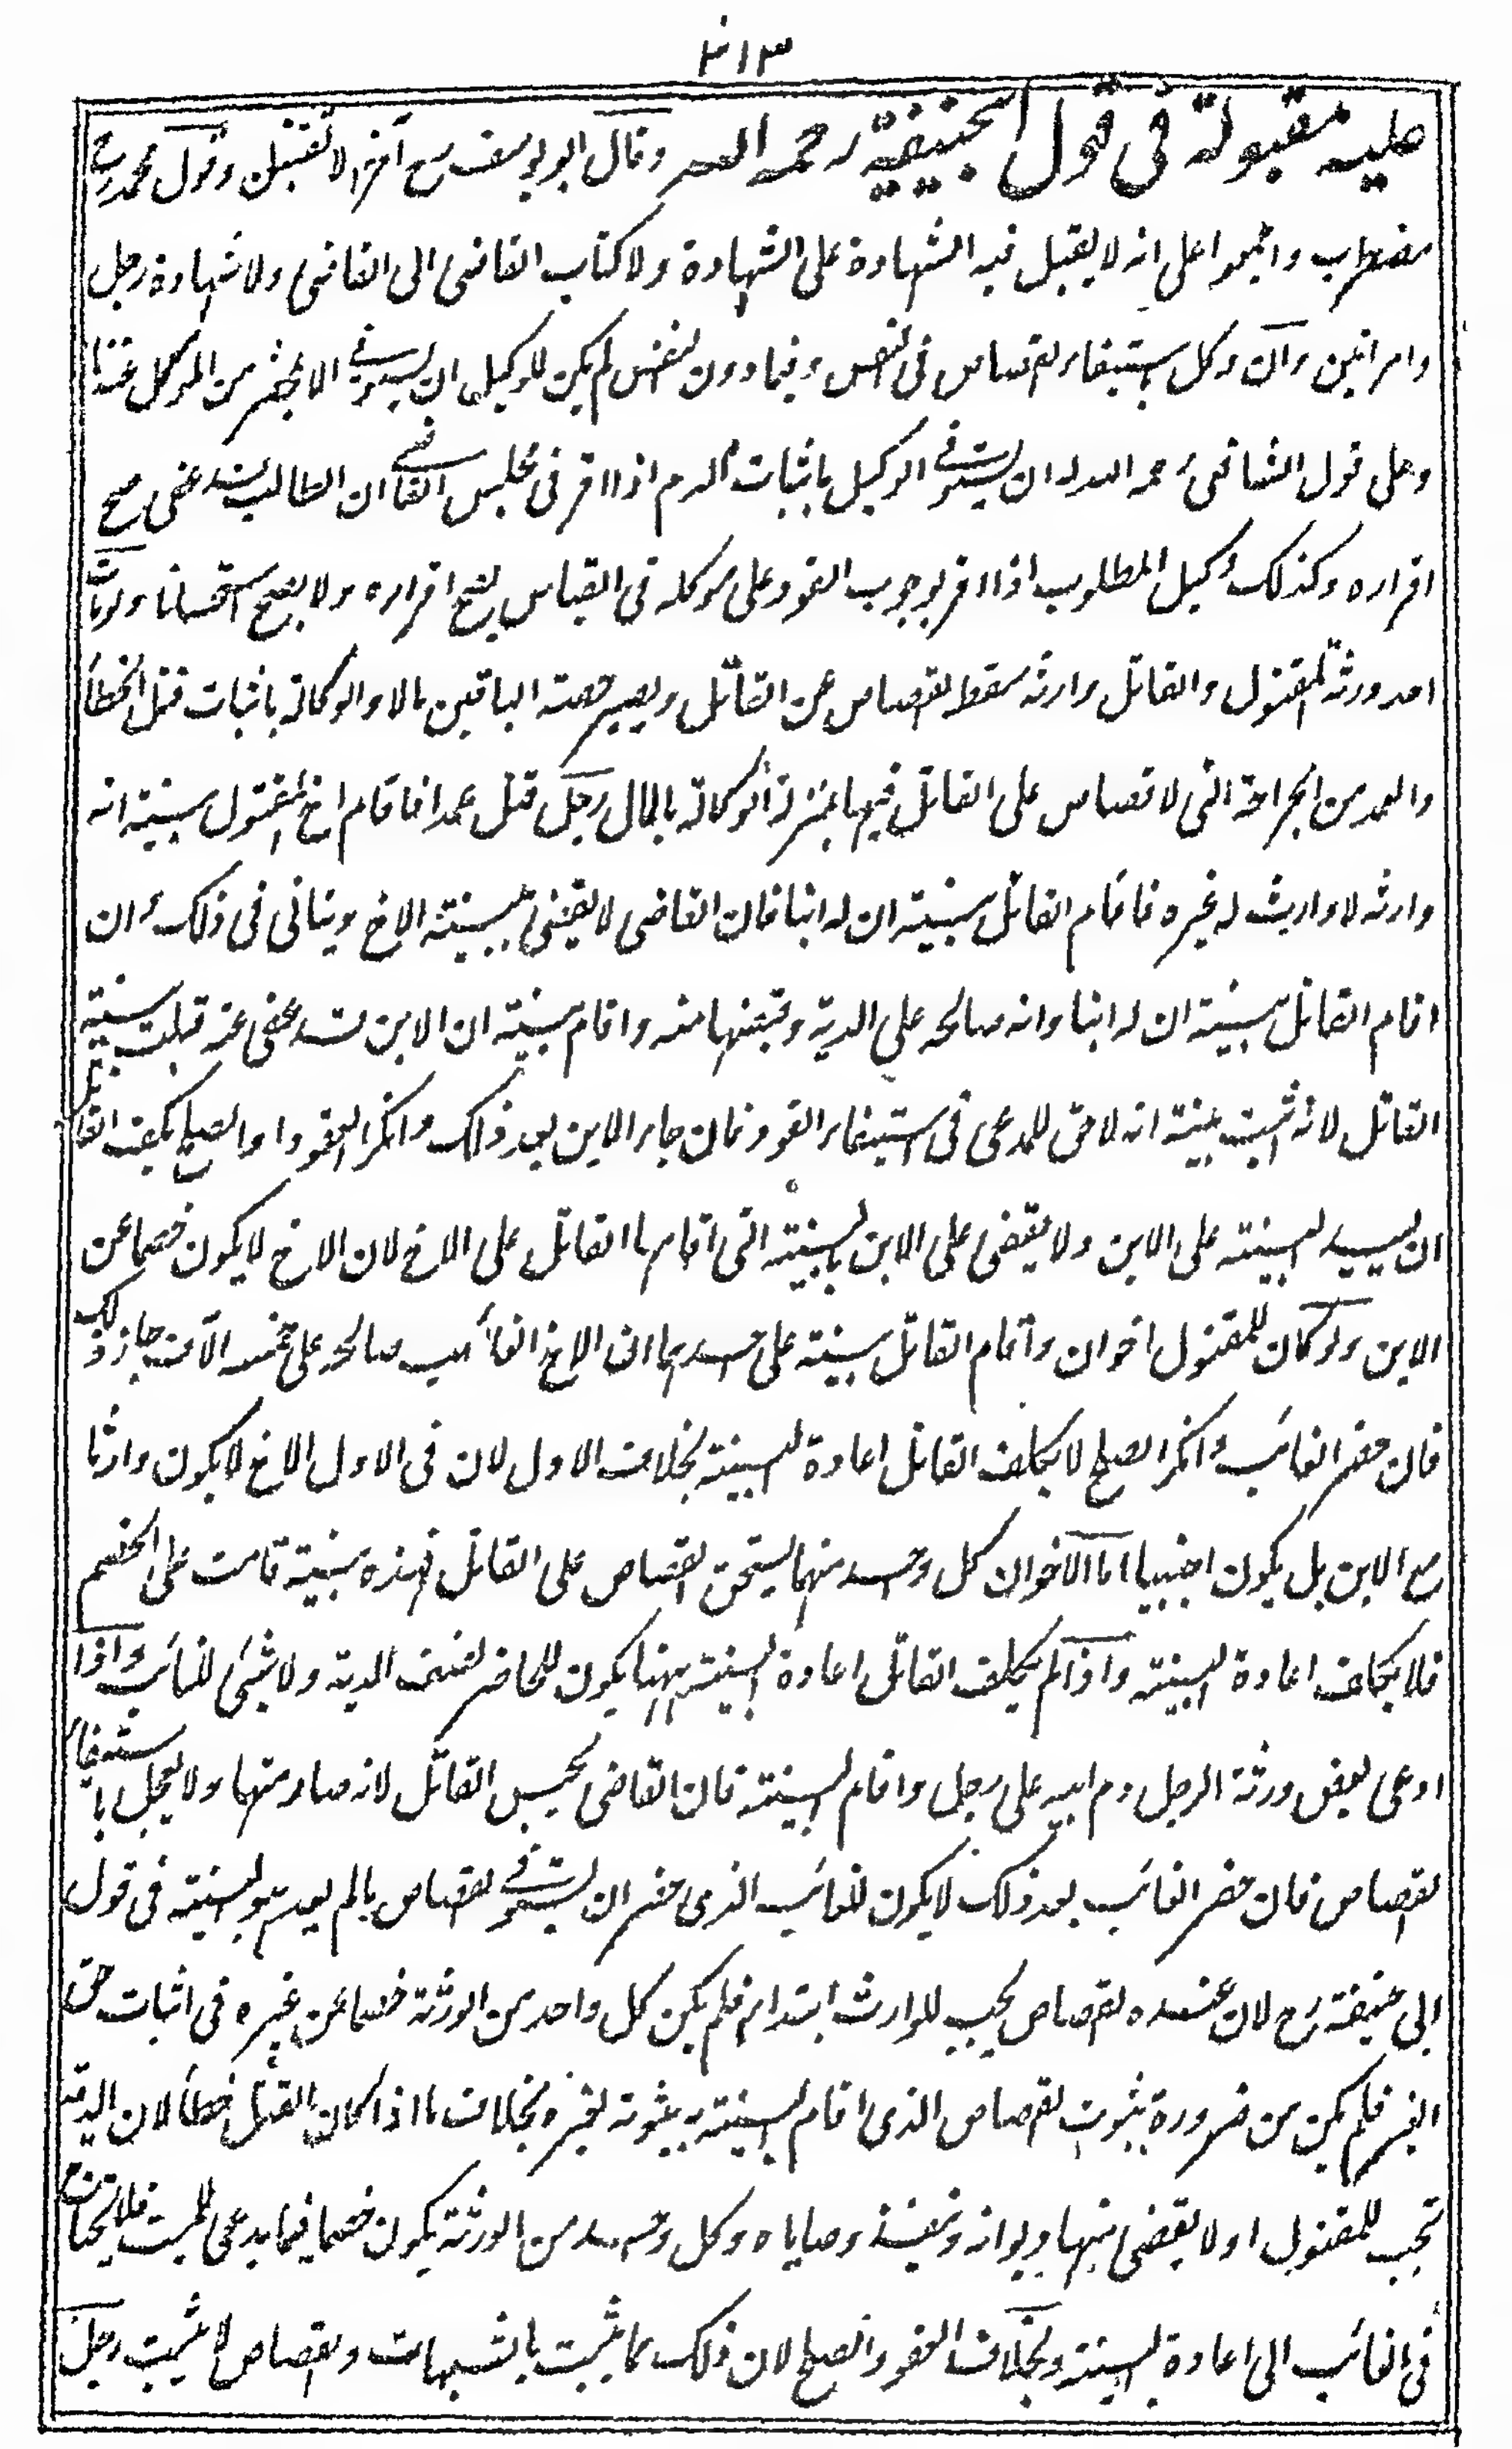 ٣١٣
عليه مقبولة في قول ابي حنيفة رحمه الله وقال ابو يوسف رح آخرا لا تقبل وقول محمد رح
مضطرب واجمعوا على انه لا يقبل فيه الشهادة على الشهادة ولا كتاب القاضى الى القاضى ولا شهادة رجل
وامرأتين وان وكل باستيفاء القصاص فى النفس وفيما دون النفس لم يكن للوكيل ان يستوفي الا بمحضر من الموكل عندنا
وعلى قول الشافعى رحمه الله له ان يستوفي الوكيل باثبات الدم اذا اقر فى مجلس القاضي ان الطالب قد عفى صح
اقراره وكذلك وكيل المطلوب اذا اقر بوجوب القود على موكله فى القياس يصح اقراره ولا يصح استحسانا ولو مات
احد ورثة المقتول والقاتل وارثه سقط القصاص عن القاتل ويصير حصة الباقين مالا والوكالة باثبات قتل الخطأ
والعمد من الجراحة التى لا قصاص على القاتل فيها بمنزلة الوكالة بالمال رجل قتل عمدا فاقام اخ المقتول بينة انه
وارثه لا وارث له غيره فاقام القاتل بينة ان له ابنا فان القاضى لا يقضى ببينة الاخ ويتانى فى ذلك وان
اقام القاتل بينة ان له ابنا وانه صالحه على الدية وقبضها منه واقام بينة ان الابن قد عفى عنه قبلت بينة
القاتل لانه اثبت ببينة انه لا حق للمدعى فى استيفاء القود فان جاء الابن بعد ذلك وانكر العفو او الصلح يكلف القاتل
ان يعيد البينة على الابن ولا يقضى على الابن بالبينة التى اقامها القاتل على الاخ لان الاخ لا يكون خصما عن
الابن ولو كان للمقتول اخوان واقام القاتل بينة على احدهما ان الاخ الغائب صالحه على خمسة آلاف جاز ذلك
فان حضر الغائب وانكر الصلح لا يكلف القاتل اعادة البينة بخلاف الاول لان فى الاول الاخ لا يكون وارثا
مع الابن بل يكون اجنبيا اما الاخوان كل واحد منهما يستحق القصاص على القاتل فهذه بينة قامت على الخصم
فلا يكلف اعادة البينة واذا لم يكلف القاتل اعادة البينة ههنا يكون للحاضر نصف الدية ولا شئ للغائب واذا
ادعى بعض ورثة الرجل دم ابيه على رجل واقام البينة فان القاضى يحبس القاتل لانه صار متهما ولا يعجل باستيفاء
القصاص فان حضر الغائب بعد ذلك لا يكون للغائب الذى حضر ان يستوفي القصاص مالم يعد هو البينة فى قول
ابى حنيفة رح لان عنده القصاص يجب للوارث ابتداء فلم يكن كل واحد من الورثة خصما عن غيره فى اثبات حق
الغير فلم يكن من ضرورة ثبوت القصاص الذى اقام البينة به ثبوته لغيره بخلاف ما اذا كان القتل خطأ لان الدية
تجب للمقتول اولا يقضى منها ديوانه وتنفيذ وصاياه وكل واحد من الورثة يكون خصما فيما يدعى للميت فلا يحتاج
فى الغائب الى اعادة البينة وبخلاف العفو والصلح لان ذلك مما يثبت بالشبهات والقصاص لا يثبت رجل